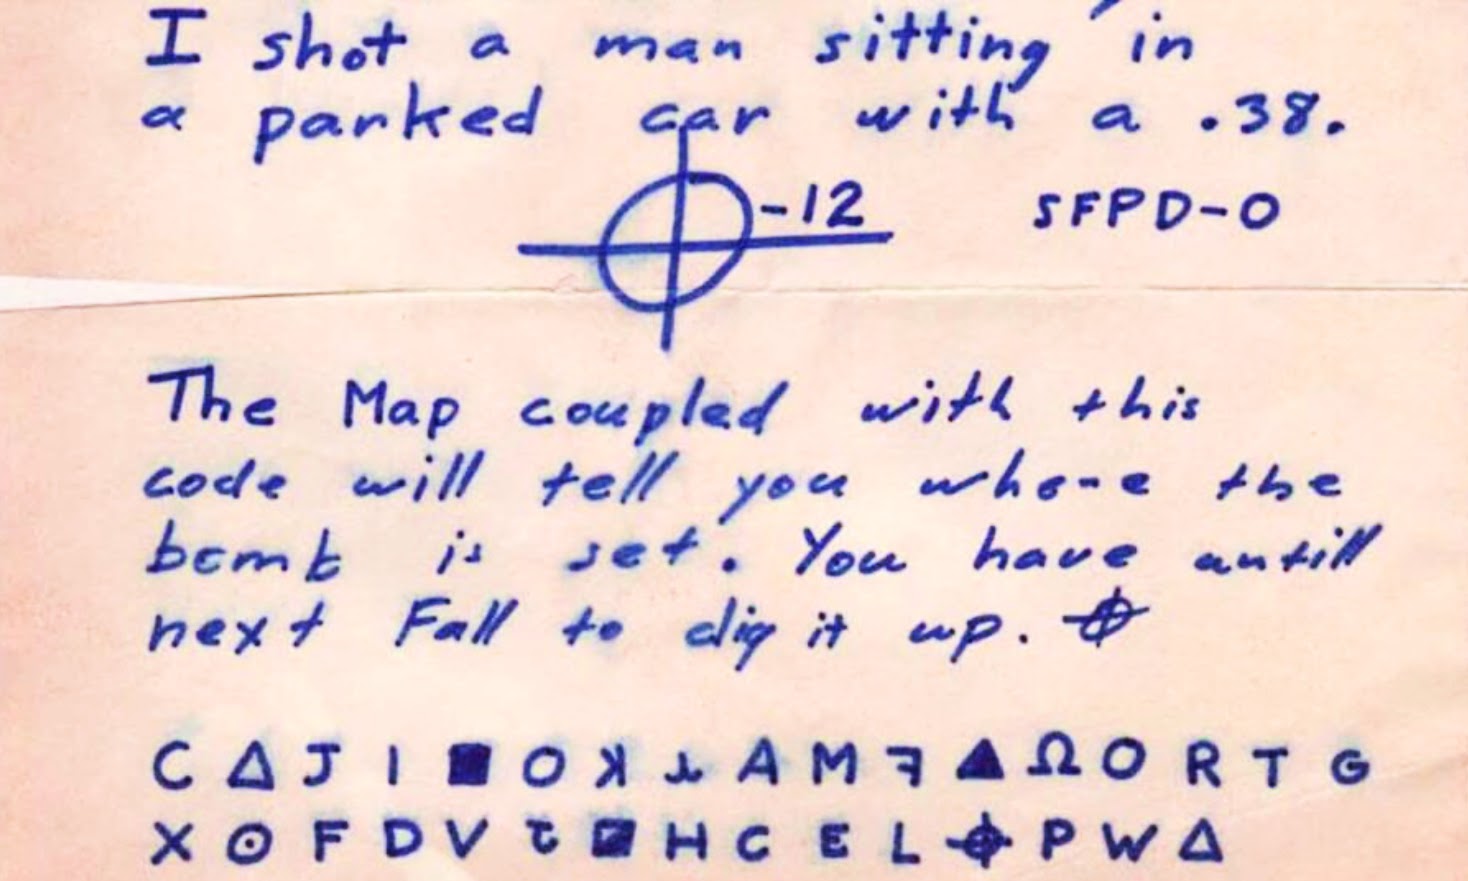 I shot a man sitting in
a parked car with a .38.
-12 SFPD-0
The Map coupled with this
code will tell you where the
bomb is set. You have untill
next Fall to dig it up. ⌖
C Δ J I ■ O ꓘ ⅄ A M ꟻ ▲ Ω O R T G
X ⊙ F D V Ʇ ◪ H C E L ⌖ P W Δ